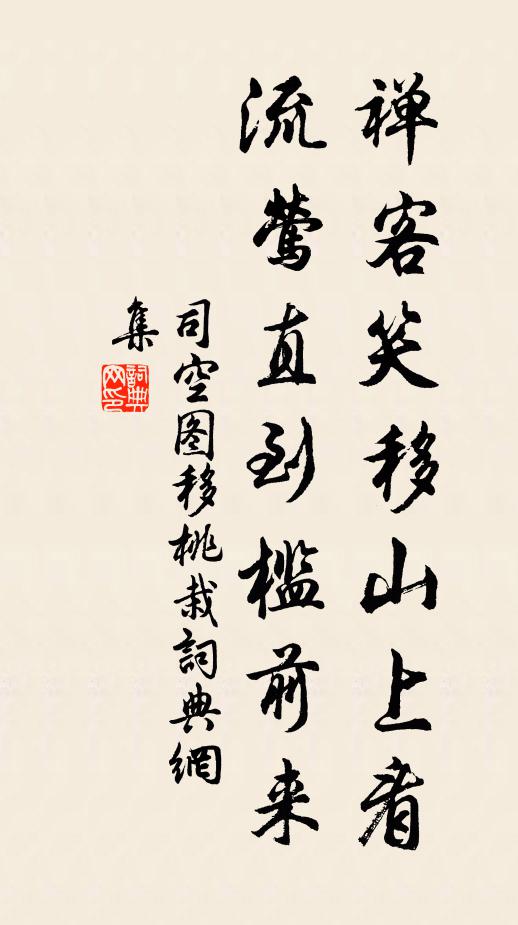 禅客笑移山上看
流莺直到槛前来
司空图移桃栽詞典網
集
詞典
网印